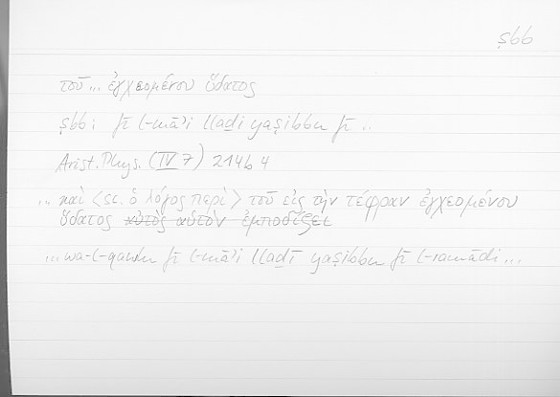 ṣbb
τοῦ... ἐγχεομένου ὕδατος
ṣbb : fī l-māʾi lladī yaṣibbu fī ..
Arist. Phys. (IV 7) 214b4
... καὶ <sc. ὁ λόγος περὶ> τοῦ εἰς τὴν τέφραν ἐγχεομένου
ὕδατος αὐτὸς αὑτὸν ἐμποδίζει
... wa-l-qawlu fī l-māʾi lladī yaṣibbu fī l-ramādi ...